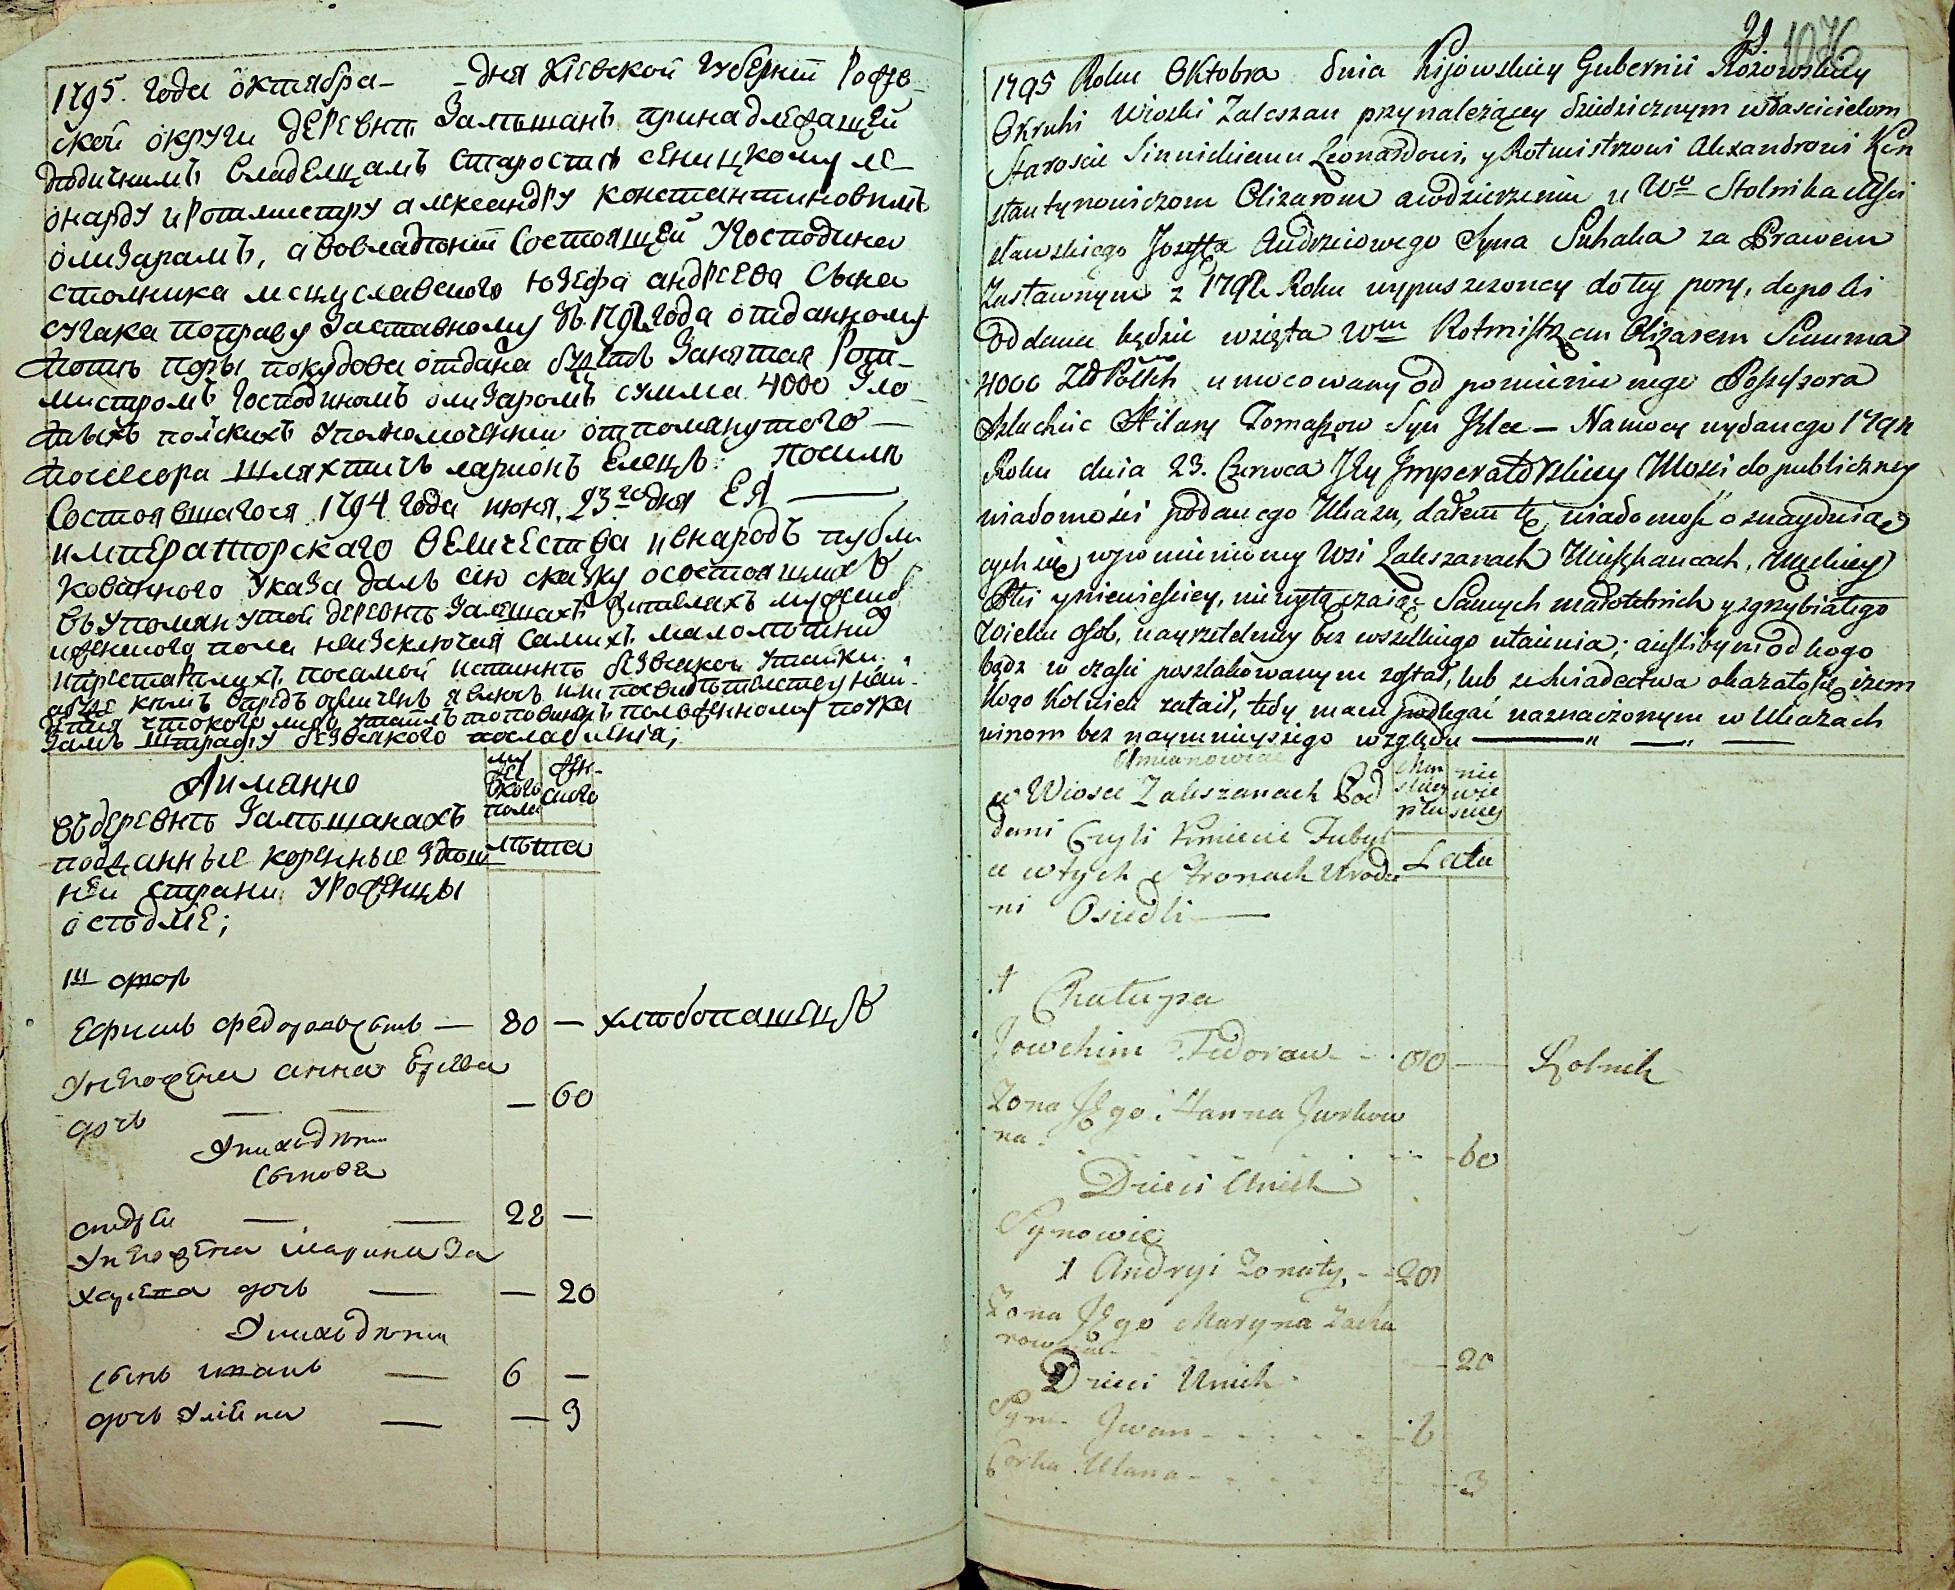 1795. года октября – – дня Кіевской губерніи Рожов-
ской округи деревнѣ Залѣшанъ принадлежащей
дѣдичнимъ владелцамъ старостѣ сеницкому ле-
онарду и ротмистру александру константиновичѣ
олизарамъ, а вовладѣніи состоящей Угосподина
столника мстиславского юзефа андреева сына
сугака поправу заставному въ 1792 года отданному
потѣ поры покудова отдана будетъ занятая Рот-
мистромъ господиномъ олизаромъ сумма 4000 зло
тыхъ полскихъ уполномоченни отпомянутого —
посесора шляхтичъ ларионъ Елецъ. Посилѣ
Состоявшагося 1794 года июня, 23го дня ЕЯ —
императорскаго величества ивнародъ публи
кованного указа далъ сию сказку осостоящихъ
въупомянутой деревнѣ Залешанахъ жителяхъ мужеска
иженского пола неизключая самихъ малолѣтнихъ
ипрестарелихъ посамой истиннѣ безвсякой утайки.
Залъ штрафу безвсякого послабленія;
Аименно
муж
ского
пола
жен-
ского
въдеревнѣ Залѣшанахъ
подданные коренные здѣш
ней страни уроженцы
оседлые;
лѣта
1й дворъ
Ефимъ федоровъ сынъ — 80 — хлѣбопашецъ
Унегожена анна Юрева
дочь — — — 60
Унихъдѣти
Сынове
андреи — — 28 —
Унегожена марина За
харева дочь — — 20
Унихъдѣти
сынъ иванъ — 6 —
дочь Улiяна — — 3
1076
1795 Roku Oktobra dnia Kijowskiey Gubernii Rożowskiey
Okruhi Wioski Zaleszan przynależącey dziedzicznym właścicielom
Staroscie Sinnickiemu Leonardowi, y Rotmistrzowi Alexandrowi Kon
stantynowiczom Olizarom awdzierżeniu u Wo Stolnika Mści
sławskiego Jozefa Andrzeiowego Syna Suhaka za Prawem
Zastawnym z 1792 Roku wypuszczoney do tey pory, dopoki
oddana będzie wzięta Wm Rotmistrzem Olizarem Summa
4000 Złł Polsch umocowany od pomienionego Possessora
Szlachcic Hilary Tomaszow Syn Jelec — Namocy wydanego 1794
Roku dnia 23. Czerwca Jey Imperatorskiey Mości do publiczney
wiadomości podanego Ukazu, dałem tę wiadomość o znayduią
cych się wpomienioney Wsi Zaleszanach Mieszkańcach, Męskiey
Płci yniewieskiey, niewyłączaiąc Samych małoletnich yzgrzybiałego
Wieku osob, nayrzetelniey bez wszelkiego utaienia; aiesliby m od kogo
bądz w czasie poszlakowanym został, lub zeświadectwa okazało się iżem
kogo kolwiek zataił, tedy mam podlegać naznaczonym w Ukazach
winom bez naymnieyszego względu — „ — „ —
Amianowicie
w Wiosce Zaleszanach Pod
dani Czyli Kmiecie Tubyl
cy wtych Stronach Urodze
ni Osiedli —
Męz
skiey
płci
nie
wie
skiey
Lata
1 Chałupa
Jowchim Fedorow - - 80 — Rolnik
Zona Jego Hanna Jurkow
na - - - 60
Dzieci Unich
Synowie
1 Andryi Zonaty - - 28
Zona Jego Maryna Zacha
rowna - — 20
Dzieci Unich
Syn Iwan - - - 6
Corka Ulana - - - 3